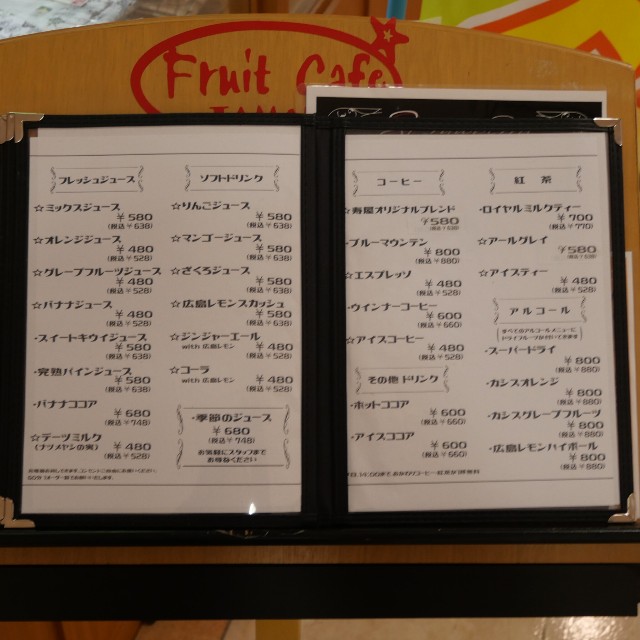 Fruit Cafe
フレッシュジュース
☆ミックスジュース
¥580
(税込¥638)
☆オレンジジュース
¥480
(税込¥528)
☆グレープフルーツジュース
¥480
(税込¥528)
☆バナナジュース
¥480
(税込¥528)
・スイートキウイジュース
¥580
(税込¥638)
・完熟パインジュース
¥580
(税込¥638)
・バナナココア
¥680
(税込¥748)
☆デーツミルク
(ナツメヤシの実) ¥480
(税込¥528)
ソフトドリンク
☆りんごジュース
¥580
(税込¥638)
☆マンゴージュース
¥580
(税込¥638)
☆ざくろジュース
¥580
(税込¥638)
☆広島レモンスカッシュ
¥580
(税込¥638)
☆ジンジャーエール
with 広島レモン ¥480
(税込¥528)
☆コーラ
with 広島レモン ¥480
(税込¥528)
・季節のジュース
¥680
(税込¥748)
お気軽にスタッフまで
お尋ねください
コーヒー
☆寿屋オリジナルブレンド
¥580
(税込¥638)
・ブルーマウンテン
¥800
(税込¥880)
☆エスプレッソ
¥480
(税込¥528)
・ウインナーコーヒー
¥600
(税込¥660)
☆アイスコーヒー
¥480
(税込¥528)
その他 ドリンク
・ホットココア
¥600
(税込¥660)
・アイスココア
¥600
(税込¥660)
紅 茶
・ロイヤルミルクティー
¥700
(税込¥770)
☆アールグレイ
¥580
(税込¥638)
☆アイスティー
¥480
(税込¥528)
アルコール
すべてのアルコールメニューに
ドライフルーツが付いてきます
・スーパードライ
¥800
(税込¥880)
・カシスオレンジ
¥800
(税込¥880)
・カシスグレープフルーツ
¥800
(税込¥880)
・広島レモンハイボール
¥800
(税込¥880)